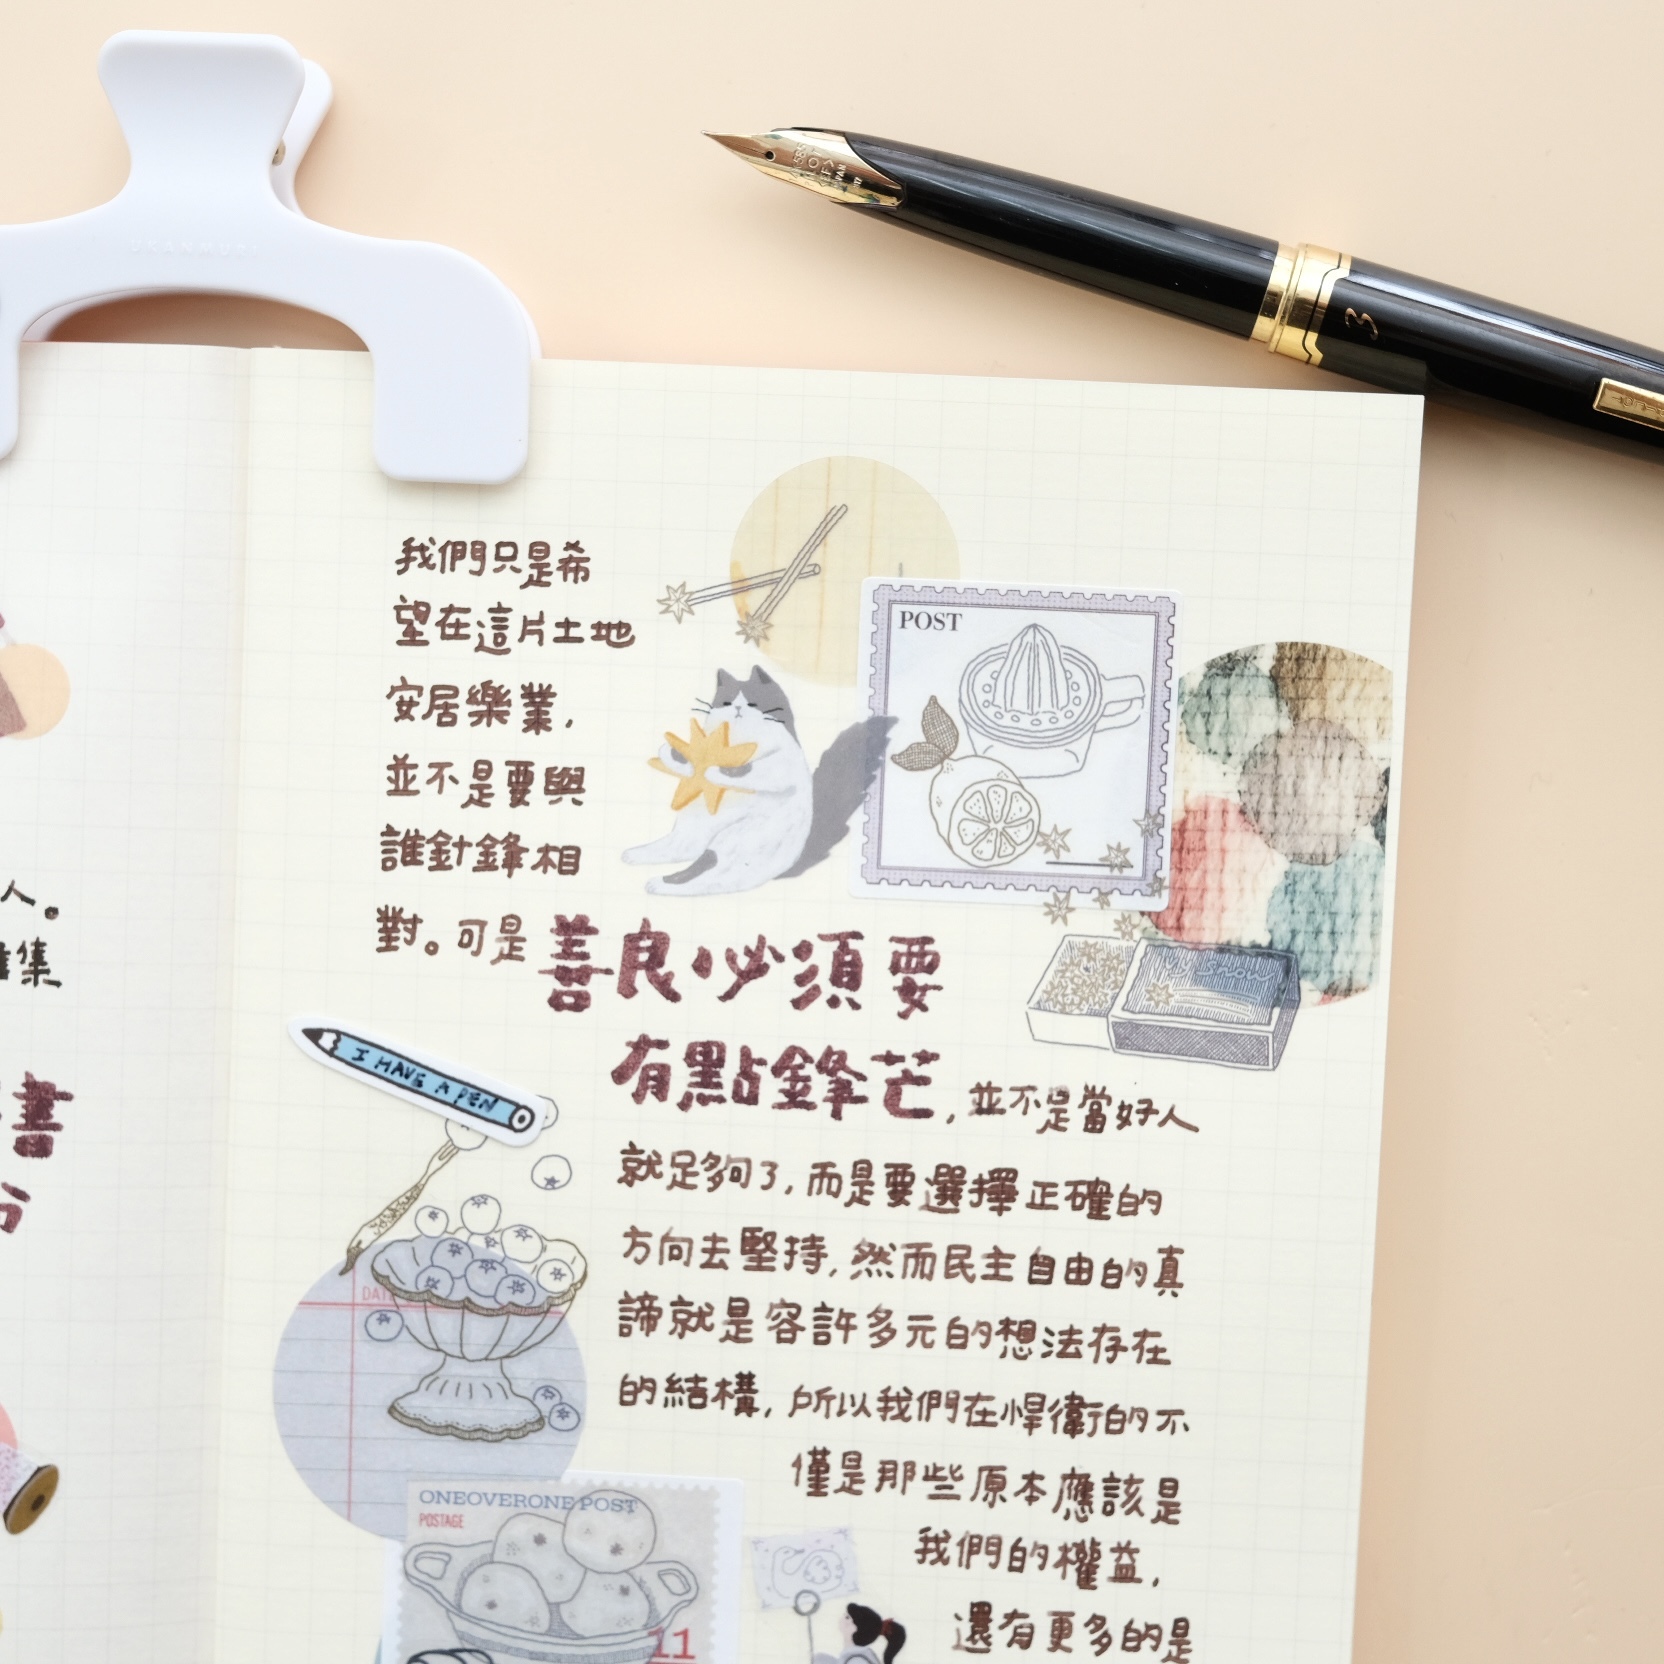 UKANMURI
我們只是希
望在這片土地
安居樂業,
並不是要與
誰針鋒相
對。可是善良必須要
有點鋒芒,並不是當好人
就足夠了,而是要選擇正確的
方向去堅持,然而民主自由的真
諦就是容許多元的想法存在
的結構,所以我們在悍衛的不
僅是那些原本應該是
我們的權益,
還有更多的是
POST
I HAVE A PEN
DATE
ONEOVERONE POST
POSTAGE
11
人。
集
書